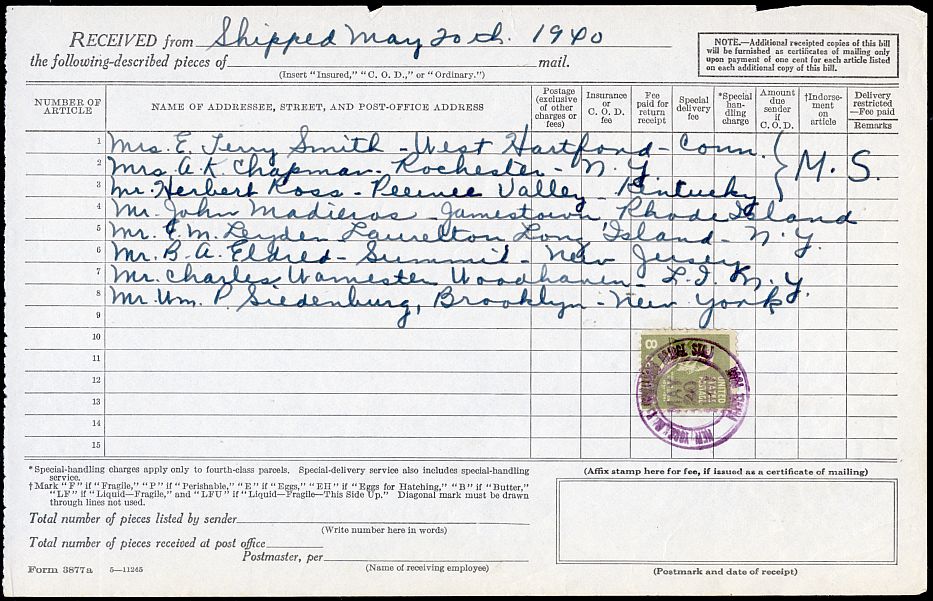 RECEIVED from Shipped May 20th. 1940
the following-described pieces of mail.
(Insert "Insured," "C. O. D.," or "Ordinary.")
NOTE.—Additional receipted copies of this bill
will be furnished as certificates of mailing only
upon payment of one cent for each article listed
on each additional copy of this bill.
NUMBER OF ARTICLE
NAME OF ADDRESSEE, STREET, AND POST-OFFICE ADDRESS
Postage (exclusive of other charges or fees)
Insurance or C. O. D. fee
Fee paid for return receipt
Special delivery fee
*Special handling charge
Amount due sender if C. O. D.
†Indorsement on article
Delivery restricted—Fee paid
Remarks
1 Mrs. E. Terry Smith - West Hartford - Conn.
2 Mrs. A. K. Chapman - Rochester - N. Y.
M. S.
3 Mr. Herbert Ross - Peewee Valley - Kintucky
4 Mr. John Madieros - Jamestown, Rhode Island
5 Mr. E. M. Leyden Laurelton Long Island - N. Y.
6 Mr. B. A. Eldred - Summit - New Jersey
7 Mr. Charles Wamester Woodhaven - L. I. N. Y.
8 Mr. Wm. P. Siedenburg, Brooklyn - New York
9
10
11
12
13
14
15
8
UNITED STATES POSTAGE
MAY 20
NEW YORK, N. Y.
*Special-handling charges apply only to fourth-class parcels. Special-delivery service also includes special-handling
service.
†Mark "F" if "Fragile," "P" if "Perishable," "E" if "Eggs," "EH" if "Eggs for Hatching," "B" if "Butter,"
"LF" if "Liquid—Fragile," and "LFU" if "Liquid—Fragile—This Side Up." Diagonal mark must be drawn
through lines not used.
(Affix stamp here for fee, if issued as a certificate of mailing)
Total number of pieces listed by sender
(Write number here in words)
Total number of pieces received at post office
Postmaster, per
(Name of receiving employee)
Form 3877a 5—11265
(Postmark and date of receipt)